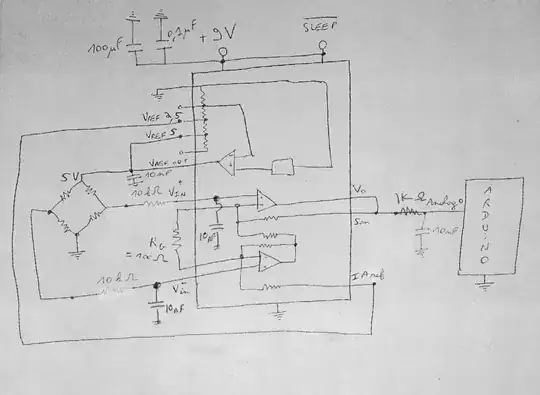 100µF
0,1µF
+9V
SLEEP
VREF 2,5
VREF 5
VREF OUT
5V
10mF
10kΩ
V+IN
Vo
1KΩ
Analog0
ARDUINO
RG
=100Ω
10nF
Sen
10nF
10kΩ
V-in
IAref
10nF